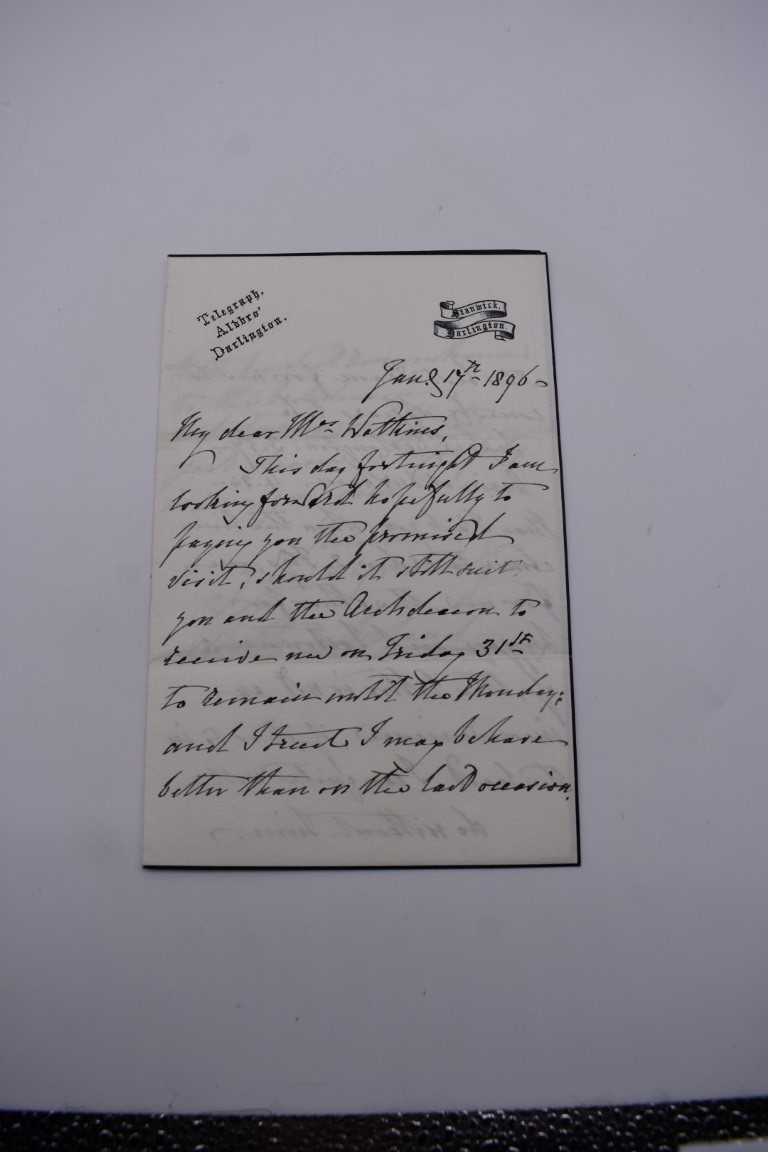 Telegraph,
Aldbro'
Darlington.
Stanwick,
Darlington.
Jany 17th 1896
My dear Mrs Watkins,
This day fortnight I am
looking forward hopefully to
paying you the promised
visit, should it still suit
you and the Archdeacon to
receive me on Friday 31st
to remain until the Monday;
and I trust I may behave
better than on the last occasion.
do without him.